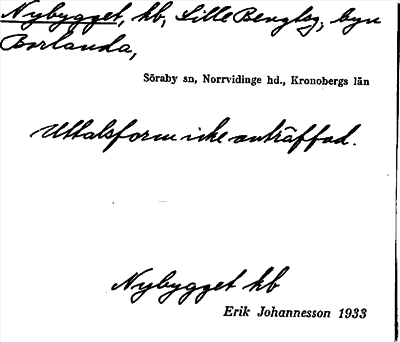 Nybygget, hb, Lille Bengtsg, byn
Borlanda,
Söraby sn, Norrvidinge hd., Kronobergs län
Uttalsform icke anträffad.
Nybygget hb
Erik Johannesson 1933